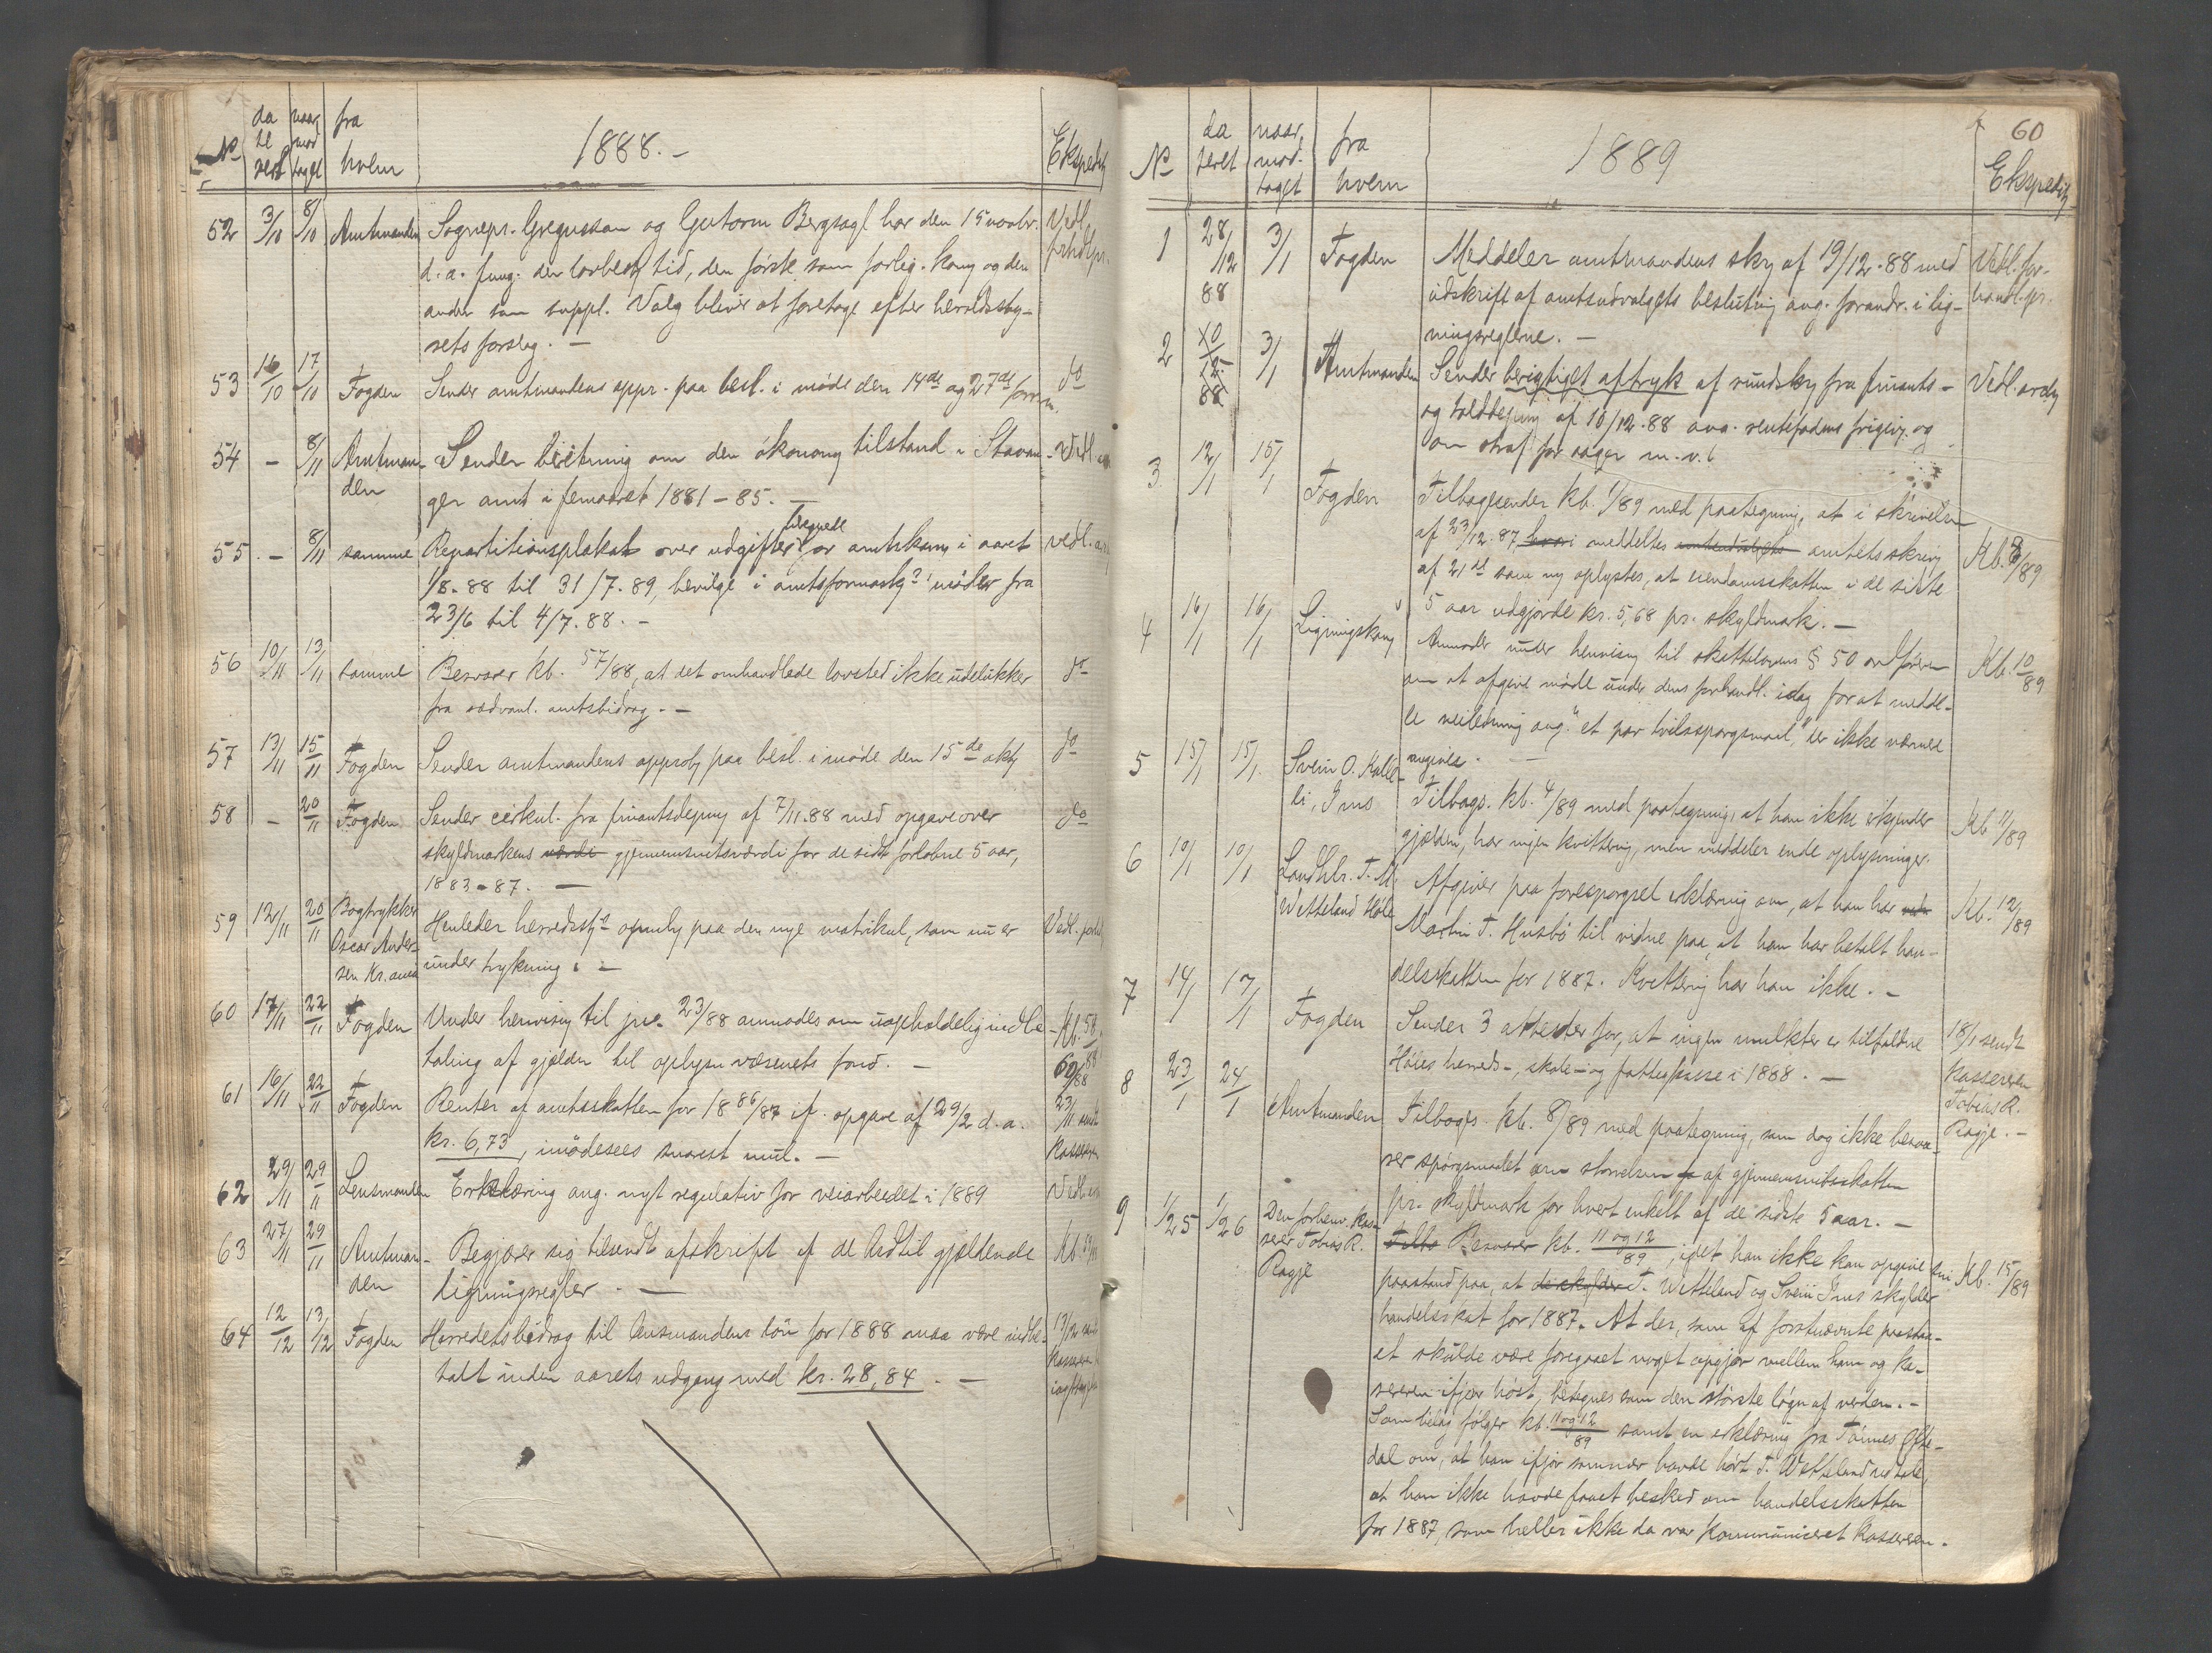 No
da
te
ret
naar
mod
taget
fra
hvem
1888.-
Ekspedit
52 3/10 8/10 Amtmanden Sognepr. Gregussen og Gutorm Bergsagl har den 15 novbr. Vedl.
d.a. fung. den lovbest. tid, den første som forlig. kom. og den
anden som suppl. Valg blever at foretage efter herredssty-
rets forslag. -
53 16/10 17/10 Fogden Sender amtmandens appr. paa besl. i møde den 14de og 27de do
54 - 8/11 Amtman- Sender beretning om den økonom. tilstand i Stavan- Vedl.
den ger amt i femaaret 1881-85. -
beregnede
55. - 8/11 samme Repartitionsplakat over udgifter for amtskom. i aaret vedl.
1/8-88 til 31/7.89, bevilge i amtsformandsk. møder fra
23/6 til 4/7.88. -
56 10/11 13/11 samme Besvarer kb. 57/88, at det omhandlede lovsted ikke udelukker do
fra sædvanl. amtsbidrag. -
57 13/11 15/11 Fogden Sender amtmandens approb. paa besl. i møde den 15de okt. do
58 - 20/11 Fogden Sender cirkul. fra finantsdepmg af 7/11.88 med opgave over do
skyldmarkens værdi gjennemsnitsværdi for de sidst forløbne 5 aar,
1883-87. -
59 12/11 20/11 Bogtrykker Henleder herredsst. opmh. paa den nye matrikul, som nu er Vedl.
Oscar Ander-
sen Kr.ania under trykning. -
60 17/11 22/11 Fogden Under henvisng til jnr. 23/88 anmodes om uopholdelig indbe- Kb. 58
taling af gjælden til oplysn.væsenets fond. - 60/88
61 16/11 22/11 Fogden Renter af amtsskatten for 1886/87 if. opgave af 29/2 d.a. 23/11 sendt
kr. 6,73, imødesees snarest mul. - kassereren
62 29/11 29/11 Lensmanden Erklæring ang. nyt regulativ for veiarbeidet i 1889 Vedl.
63 27/11 29/11 Amtman- Begjærer sig tilsendt afskrift af de hidtil gjældende Kb. 59/88
den ligningsregler. -
64 12/12 13/12 Fogden Herredets bidrag til lensmandens løn for 1888 maa være indbe- 13/12
talt inden aarets udgang med kr. 28,84. - kassereren
60
No
da
teret
naar
mod-
taget
fra
hvem
1889
Ekspedit
1 28/12 88 3/1 Fogden Meddeler amtmandens skr. af 19/12.88 med Vedl. for-
udskrift af amtsudvalgets beslutning ang. forandr. i lig- handl.pr.
ningsreglerne. -
2 10/12 88 3/1 Amtmanden Sender berigtiget aftryk af rundskr. fra finants- Vedl.
og tolddepmg af 10/12.88 ang. rentefodens frigivn. og
om straf for aager m.v.
3. 12/1 15/1 Fogden Tilbagesender kb. 1/89 med paategning, at i skrivelse
af 23/12.87 hvori meddeltes amtets skriv. Kb. 8/89
af 21de oplystes, at eiendomsskatten i de sidste
5 aar udgjorde kr. 5,68 pr. skyldmark. -
4 16/1 16/1 Ligningskom. Anmoder under henvisn. til skatteloven § 50 ordføreren Kb. 10/89
om at afgive møde under dens forhandl. idag for at medde-
le veiledning ang. "et par tvilsspørgsmaal", der ikke nærmere
angives. -
5 15/1 15/1. Svein O. Kalle- Tilbags. kb. 4/89 med paategning, at han ikke erkjender Kb 11/89
li, Ims gjælden, har ingen kvittering, men meddeler endel oplysninger.
6 10/1 10/1 Landhlr. T. M. Afgiver paa forespørgsel erklæring om, at han har Kb. 12/89
Wetteland Høle Martin T. Husbø til vidne paa, at han har betalt han-
delsskatten for 1887. Kvittering har han ikke. -
7 14/1 17/1 Fogden Sender 3 attester for, at ingen mulkter er tilfaldne 18/1 sendt
Høies herreds-, skole- og fattigkasse i 1888. - kassereren
Tobias R.
Ragje. -
8 23/1 24/1 Amtmanden Tilbags. kb. 8/89 med paategning, som dog ikke besva-
rer spørgsmaalet om størrelsen af gjennemsnitsskatten
pr. skyldmark for hvert enkelt af de sidste 5 aar. -
9 1/25 1/26 Den forhenv. kas- Besvarer kb. 11 og 12/89, idet han ikke kan opgive sin Kb. 15/89
serer Tobias R. paastand paa, at T. Wetteland og Svein Ims skylder
Ragje handelsskat for 1887. At der, som af førstnævnte paastaa-
et skulde være foregaaet noget opgjør mellem ham og ka-
sereren ifjor høst, betegnes som den største løgn af verden. -
Som bilag følger kb. 11 og 12/89 samt en erklæring fra Tønnes Ofte-
dal om, at han ifjor sommer havde hørt T. Wetteland udtale,
at han ikke havde faaet besked om handelsskatten
for 1887, som heller ikke da var kommuniceret kassereren.